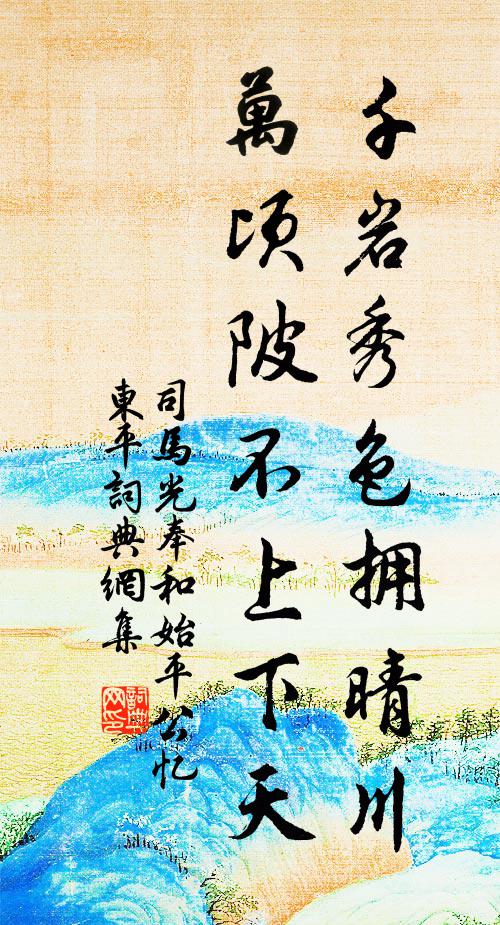 千岩秀色拥晴川
萬顷陂不上下天
司馬光奉和始平公忆
東平詞典網集